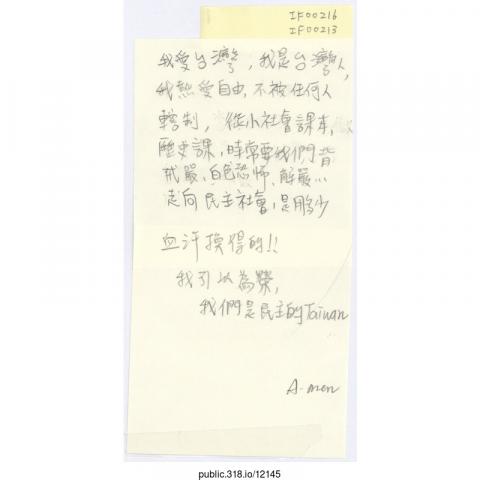 IF00216
IF00213
我愛台灣,我是台灣人,
我熱愛自由,不被任何人
轄制,從小社會課本,
歷史課,時常要我們背
戒嚴、白色恐怖、解嚴…
走向民主社會,是用多少
血汗換得的!!
我引以為榮,
我們是民主的Taiwan
A-men
public.318.io/12145